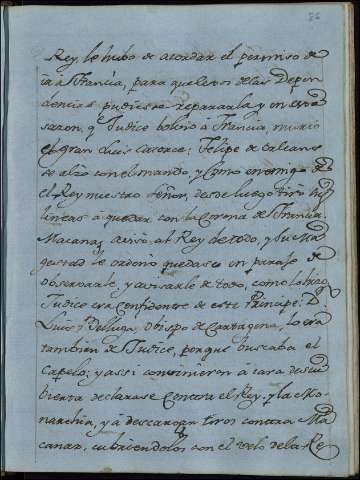 86
Rey, le hubo de acordar el permiso de
ir à Francia, para que lexos de las Depen
dencias pudiesse repararla y en esta
sazon, q.e Judice bolvio à Francia, murió
el gran Luis Catorce; Felipe de Orleans
se alzo con el mando, y como enemigo de
el Rey nuestro Señor, desde luego tiró sus
lineas à quedar con la Corona de Francia.
Macanaz avisó al Rey de todo, y su Ma
gestad le ordenó quedasse en parage de
observarle, y avisarle de todo, como lo hizo
Judice era Confidente de este Principe; D.
Luis Belluga, Obispo de Cartagena, lo era
tambien de Judice, porque buscaba el
Capelo; y assi convinieron à cara descu
bierta declararse Contra el Rey, y la Mo-
narchia, y à descargar tiros contra Ma
canaz, cubriendolos con el velo de la Re